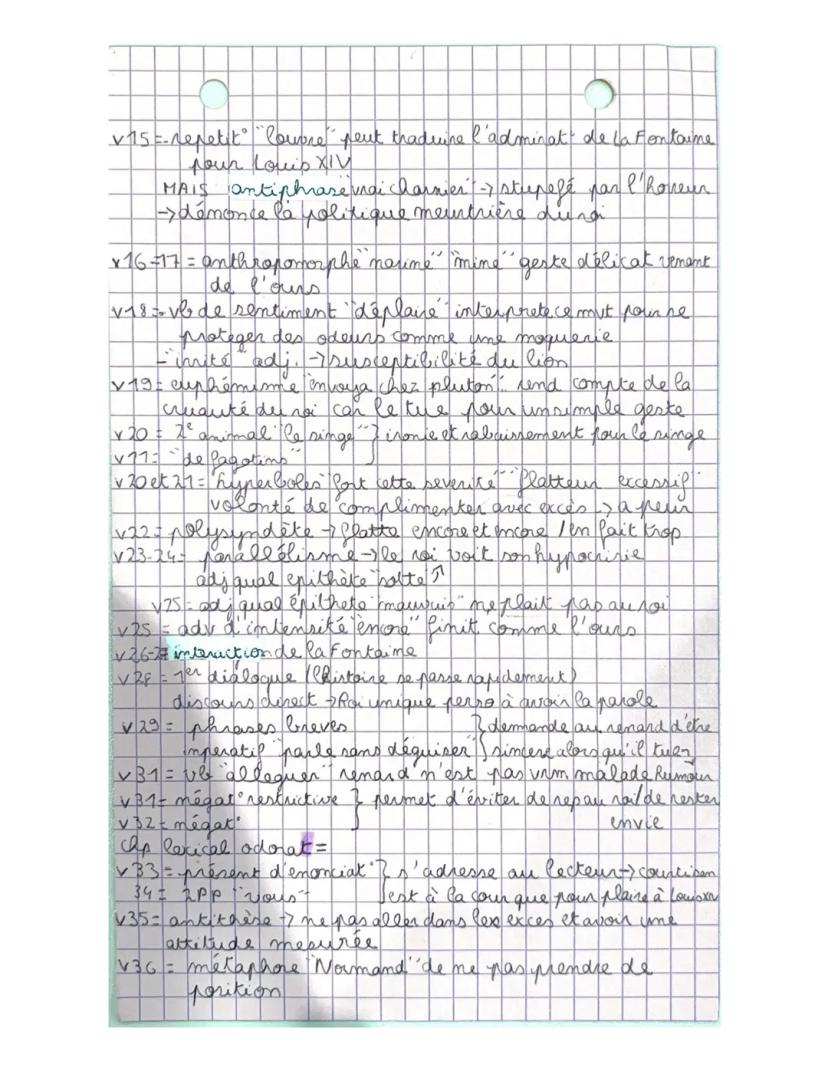 v15=-repetit° "louvre" peut traduire l'adminat° de La Fontaine
pour Louis XIV
MAIS antiphrase "vrai charnier" -> stupefé par l'horreur
-> démonce la politique meurtrière du roi
v16-17 = anthropomorphe "narine" "mine" geste délicat venant
de l'ours
v18 = vb de sentiment "déplaire" interprete ce mvt pour se
proteger des odeurs comme une moquerie
- "irrité" adj. -> susceptibilité du lion
v19 = euphémisme "envoya chez pluton" rend compte de la
cruauté du roi car le tue pour un simple geste
v20 = 2e animal "le singe" } ironie et rabaissement pour le singe
v21= "de fagotins"
v20 et 21 = hyperboles "fort cette severité" "flatteur excessif"
volonté de complimenter avec excès -> a peur
v22= polysyndète -> flatte encore et encore / en fait trop
v23-24= parallélisme -> le roi voit son hypocrisie
adj qual epithète "sotte" ↑
v25= adj qual épithete "mauvais" ne plait pas au roi
v25 = adv d'intensité "encore" finit comme l'ours
v26-27 interaction de la Fontaine
v28 = 1er dialogue (l'histoire se passe rapidement)
discours direct -> Roi unique perso à avoir la parole
v29 = phrases breves } demande au renard d'être
imperatif "parle sans déguiser" sincere alors qu'il tuer
v31 = vb "alleguer" renard n'est pas vrm malade Rumour
v31= négat° restrictive } permet d'éviter de rep au roi/de rester
v32= négat° envie
chp lexical odorat=
v33 = présent d'énonciat° } s'adresse au lecteur -> courtisan
34= 2PP "vous" est à la cour que pour plaire à Louis XIV
v35= antithèse -> ne pas aller dans les exces et avoir une
attitude mesurée
v36 = métaphore "Normand" de ne pas prendre de
position